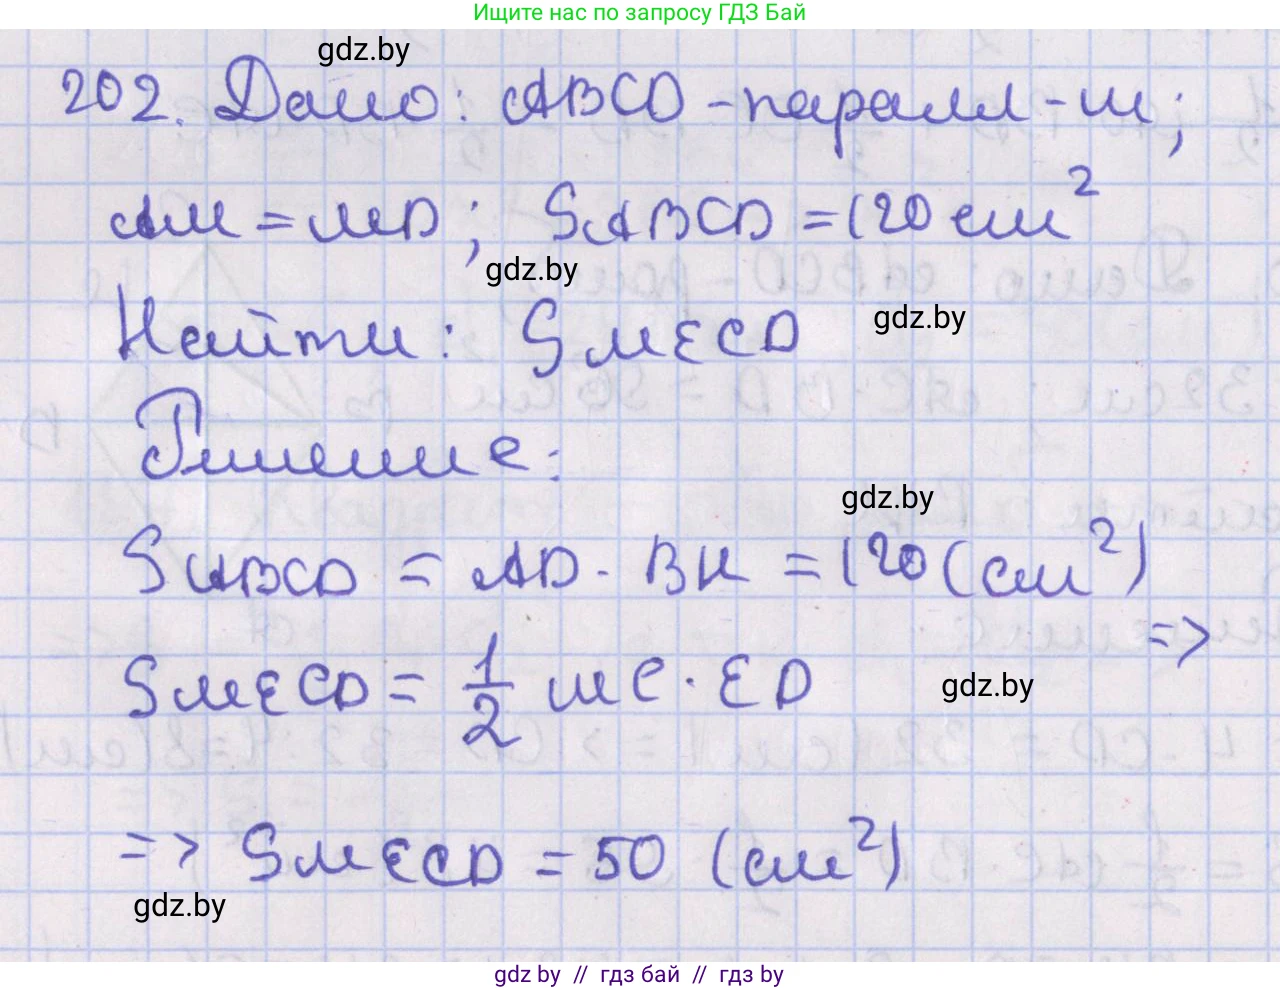 Ищите нас по запросу ГДЗ Бай
gdz.by
202. Дано: ABCD - паралл-м;
AM = MD; SABCD = 120 см²
gdz.by
Найти: SMECD
gdz.by
Решение:
gdz.by
SABCD = AD · BK = 120 (см²)
=>
SMECD = 1/2 MC · ED
gdz.by
=> SMECD = 50 (см²)
gdz.by
gdz.by // гдз бай // гдз by